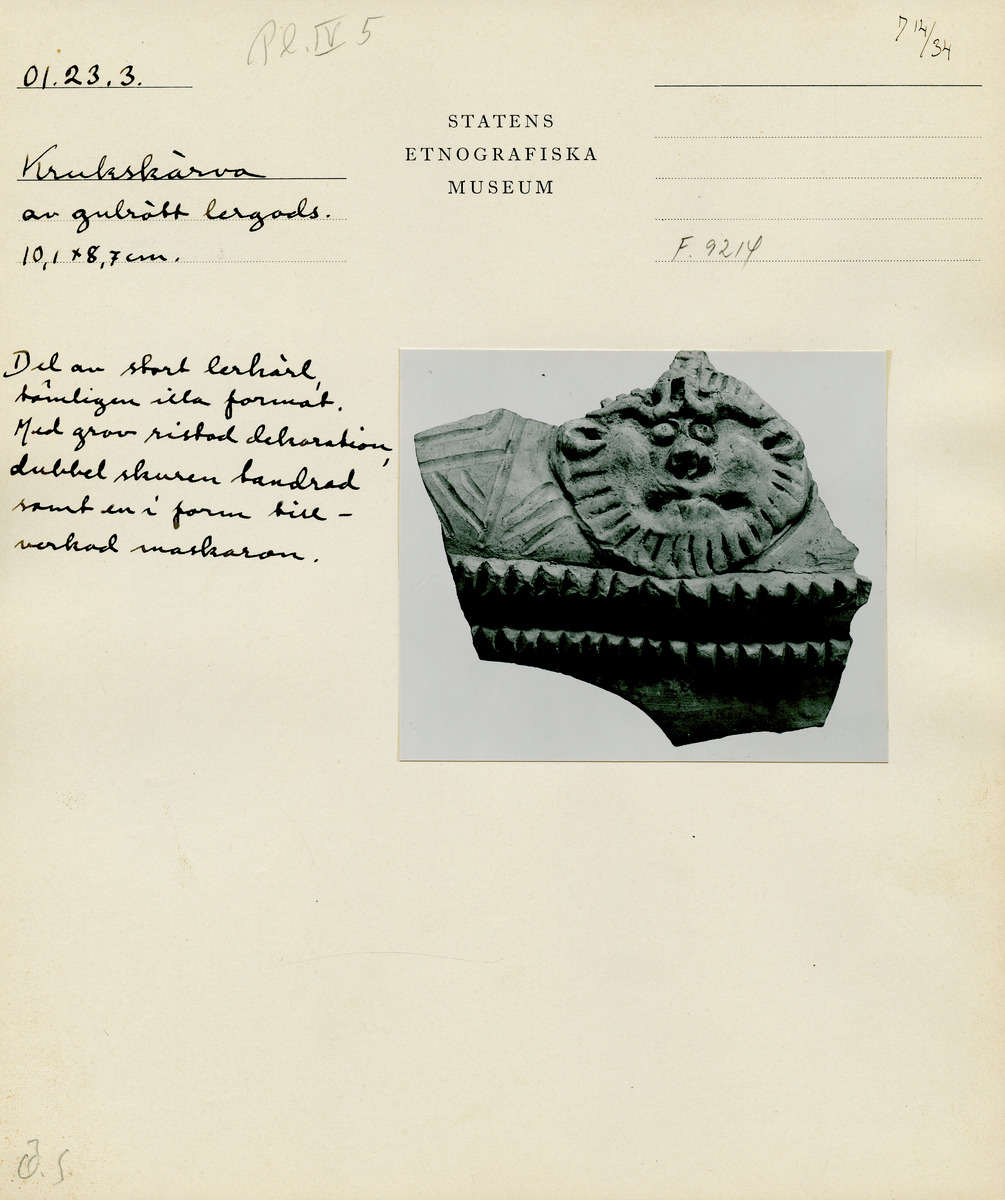 Pl. IV 5
7 14/34
01.23.3.
STATENS
ETNOGRAFISKA
MUSEUM
Krukskärva
av gulrött lergods.
10,1 × 8,7 cm.
F. 9214
Del av stort lerkärl,
tämligen illa format.
Med grov ristad dekoration,
dubbel skuren tandrad
samt en i form till-
verkad maskaron.
Ö. S.